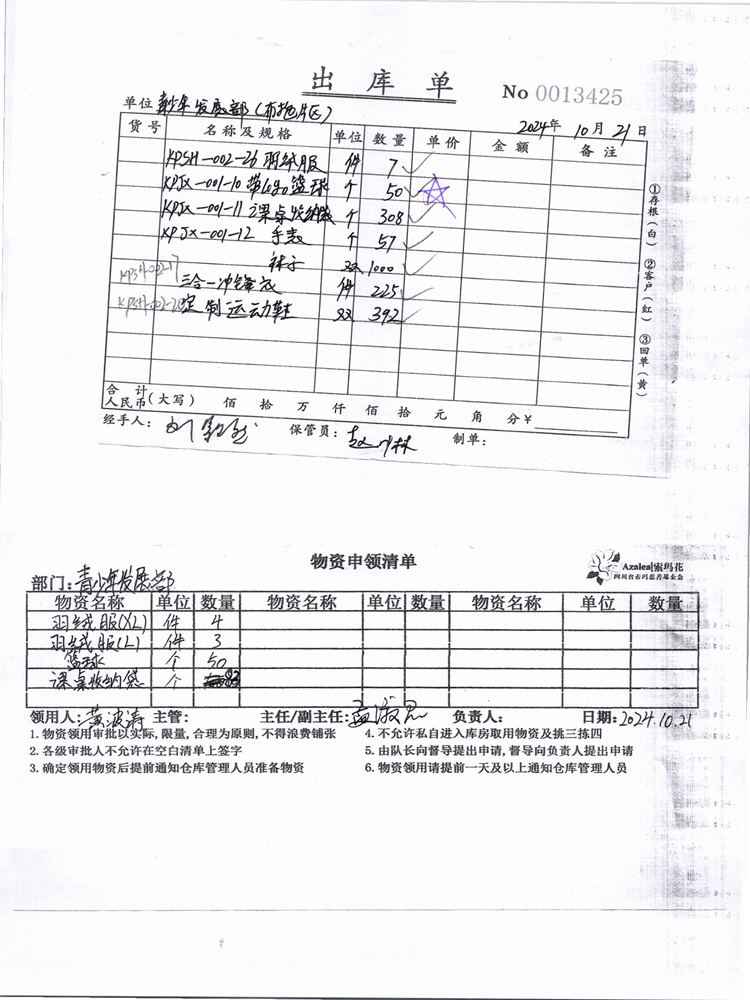 出库单
No 0013425
单位 青少年发展部(布拖片区)
2024年 10月 21日
货号 名称及规格 单位 数量 单价 金额 备注
KPSH-002-26 羽绒服 件 7
KPJX-001-10 篮球 个 50
KPJX-001-11 课桌收纳袋 个 308
KPJX-001-12 手表 个 57
袜子 双 1000
KPSH-002-17 三合一冲锋衣 件 225
定制运动鞋 双 392
合计
人民币(大写) 佰 拾 万 仟 佰 拾 元 角 分¥
经手人: 保管员: 制单:
①存根(白) ②客户(红) ③回单(黄)
物资申领清单
Azalea|索玛花
四川省索玛慈善基金会
部门:青少年发展部
物资名称 单位 数量 物资名称 单位 数量 物资名称 单位 数量
羽绒服(XL) 件 4
羽绒服(L) 件 3
篮球 个 50
课桌收纳袋 个
领用人:黄波涛 主管: 主任/副主任: 负责人: 日期:2024.10.21
1.物资领用审批以实际,限量,合理为原则,不得浪费铺张 4.不允许私自进入库房取用物资及挑三拣四
2.各级审批人不允许在空白清单上签字 5.由队长向督导提出申请,督导向负责人提出申请
3.确定领用物资后提前通知仓库管理人员准备物资 6.物资领用请提前一天及以上通知仓库管理人员